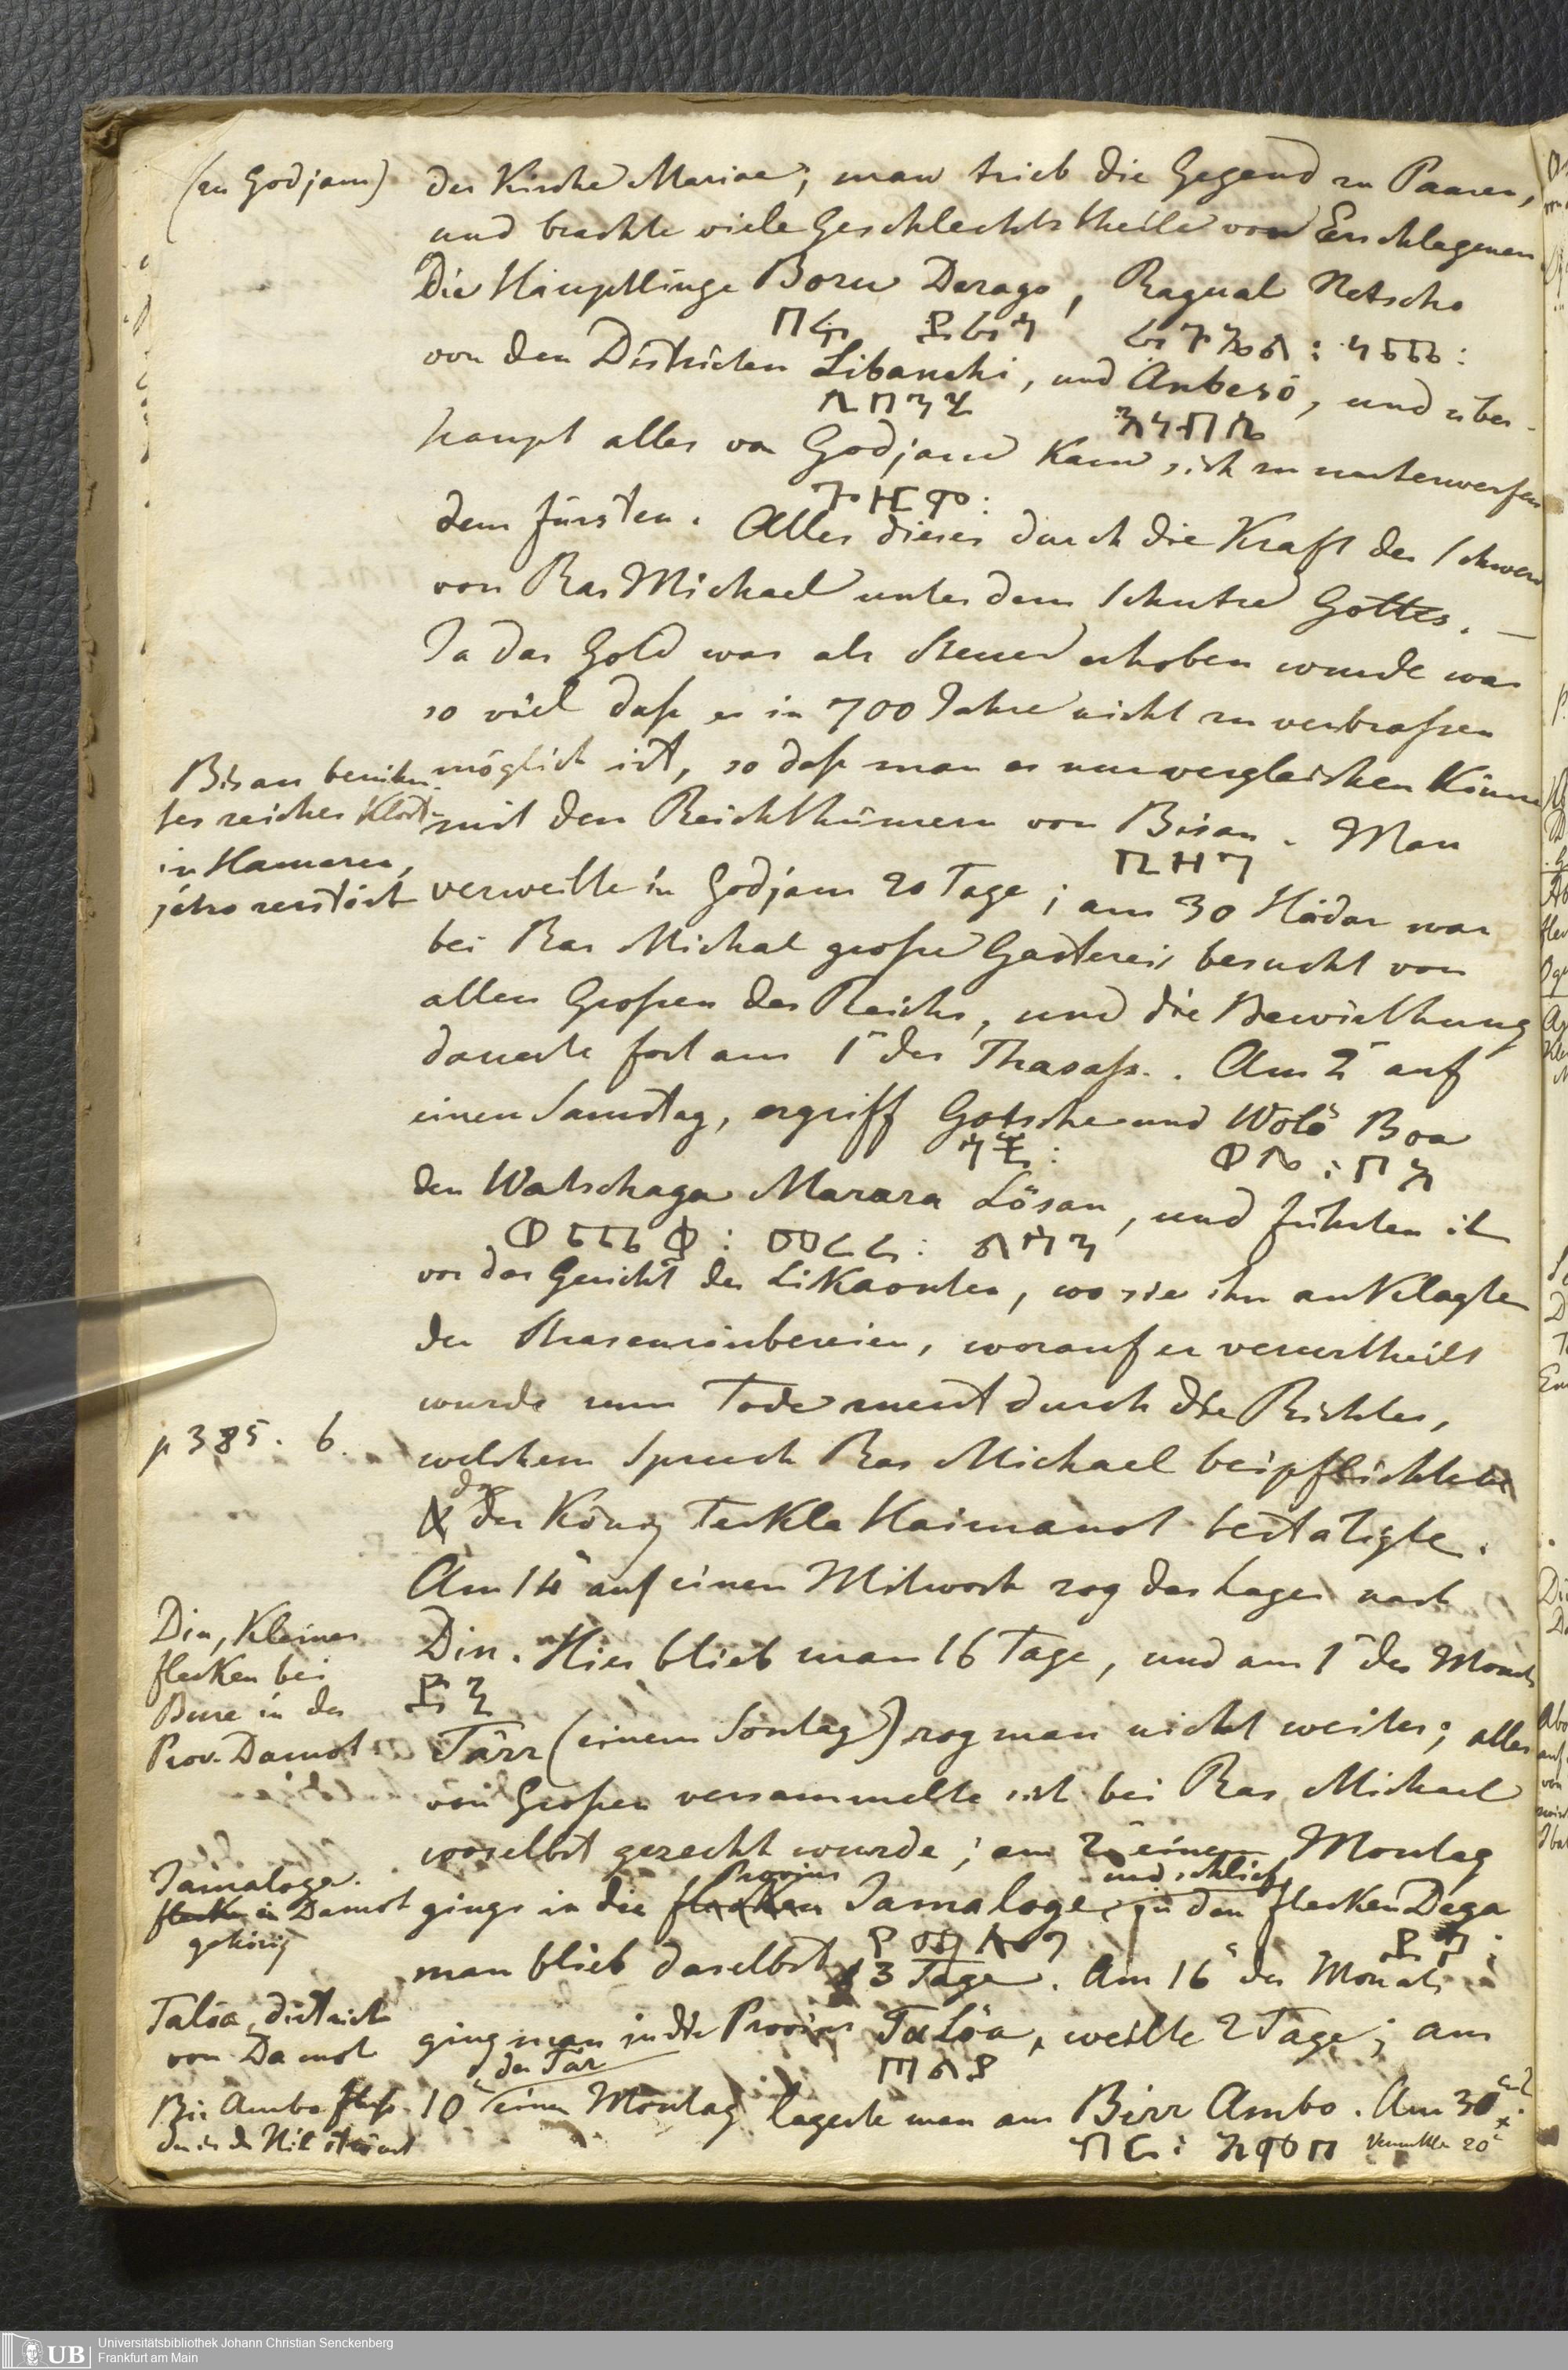 (in Godjam) der Kirche Mariae; man trieb die Gegend zu Paaren,
und brachte viele Geschlechtstheile von Erschlagenen
Die Häuptlinge Boru Derago, Ragual Netscho
von den Districten Libanchi, und Anbesö, und über-
ሊባንቺ
haupt alles von Godjam kam sich zu unterwerfen
ጎዣም:
dem Fürsten. Alles dieses durch die Kraft des Schwerd
von Ras Michael unter dem Schutze Gottes. —
Ja das Gold was als Steuer erhoben wurde war
so viel dass es in 700 Jahre nicht zu verbrassen
möglich ist, so dass man es nur vergleichen könne
mit den Reichthümern von Bisan. Man
ቢዛን
Bisan berühm-
tes reiches Klost.
in Hamasen,
jetzo zerstört
verweilte in Godjam 20 Tage; am 30 Hädar war
bei Ras Michael grosse Gasterei, besucht von
allen Grossen des Reichs, und die Bewirthung
dauerte fort am 1ᵗ des Thasass. Am 2ᵗ auf
einen Samstag, ergriff Gotsche und Wolö Boa
den Watschaga Marara Lösan, und führten ih
ወጨቃ: መረረ: ልሳን
vor das Gericht der Likaonten, wo sie ihn anklagten
der Strasenräubereien, worauf er verurtheilt
wurde zum Tode zuerst durch die Richter,
p 385. 6.
welchem Spruch Ras Michael beipflichtete
der König Teckla Haimanot bestätigte.
Am 14ᵗ auf einen Mitwoch zog das Lager nach
Din. Hier blieb man 16 Tage, und am 1ᵗ des Monats
ዲን
Din, kleiner
flecken bei
Bure in der
Prov. Damot
Tärr (einem Sontag) zog man nicht weiter; alles
von Grossen versammelte sich bei Ras Michael
woselbst gezecht wurde; am 2ᵗ einem Montag
gings in die flecken Provinz Jamaloge und schlief in den flecken Dega
Jamaloge.
flecke in Damot
gehörig
man blieb daselbst 13 Tage. Am 16ᵗ des Monats
ging man in die Provinz Talöa, weilte 2 Tage; am
ጠልዋ
Talöa, district
von Damot
10ᵗ des Tär einen Montag lagerte man am Birr Ambo. Am 30ᵗ
ብር: አምቦ
Bir Ambo fluss
der in den Nil strömt